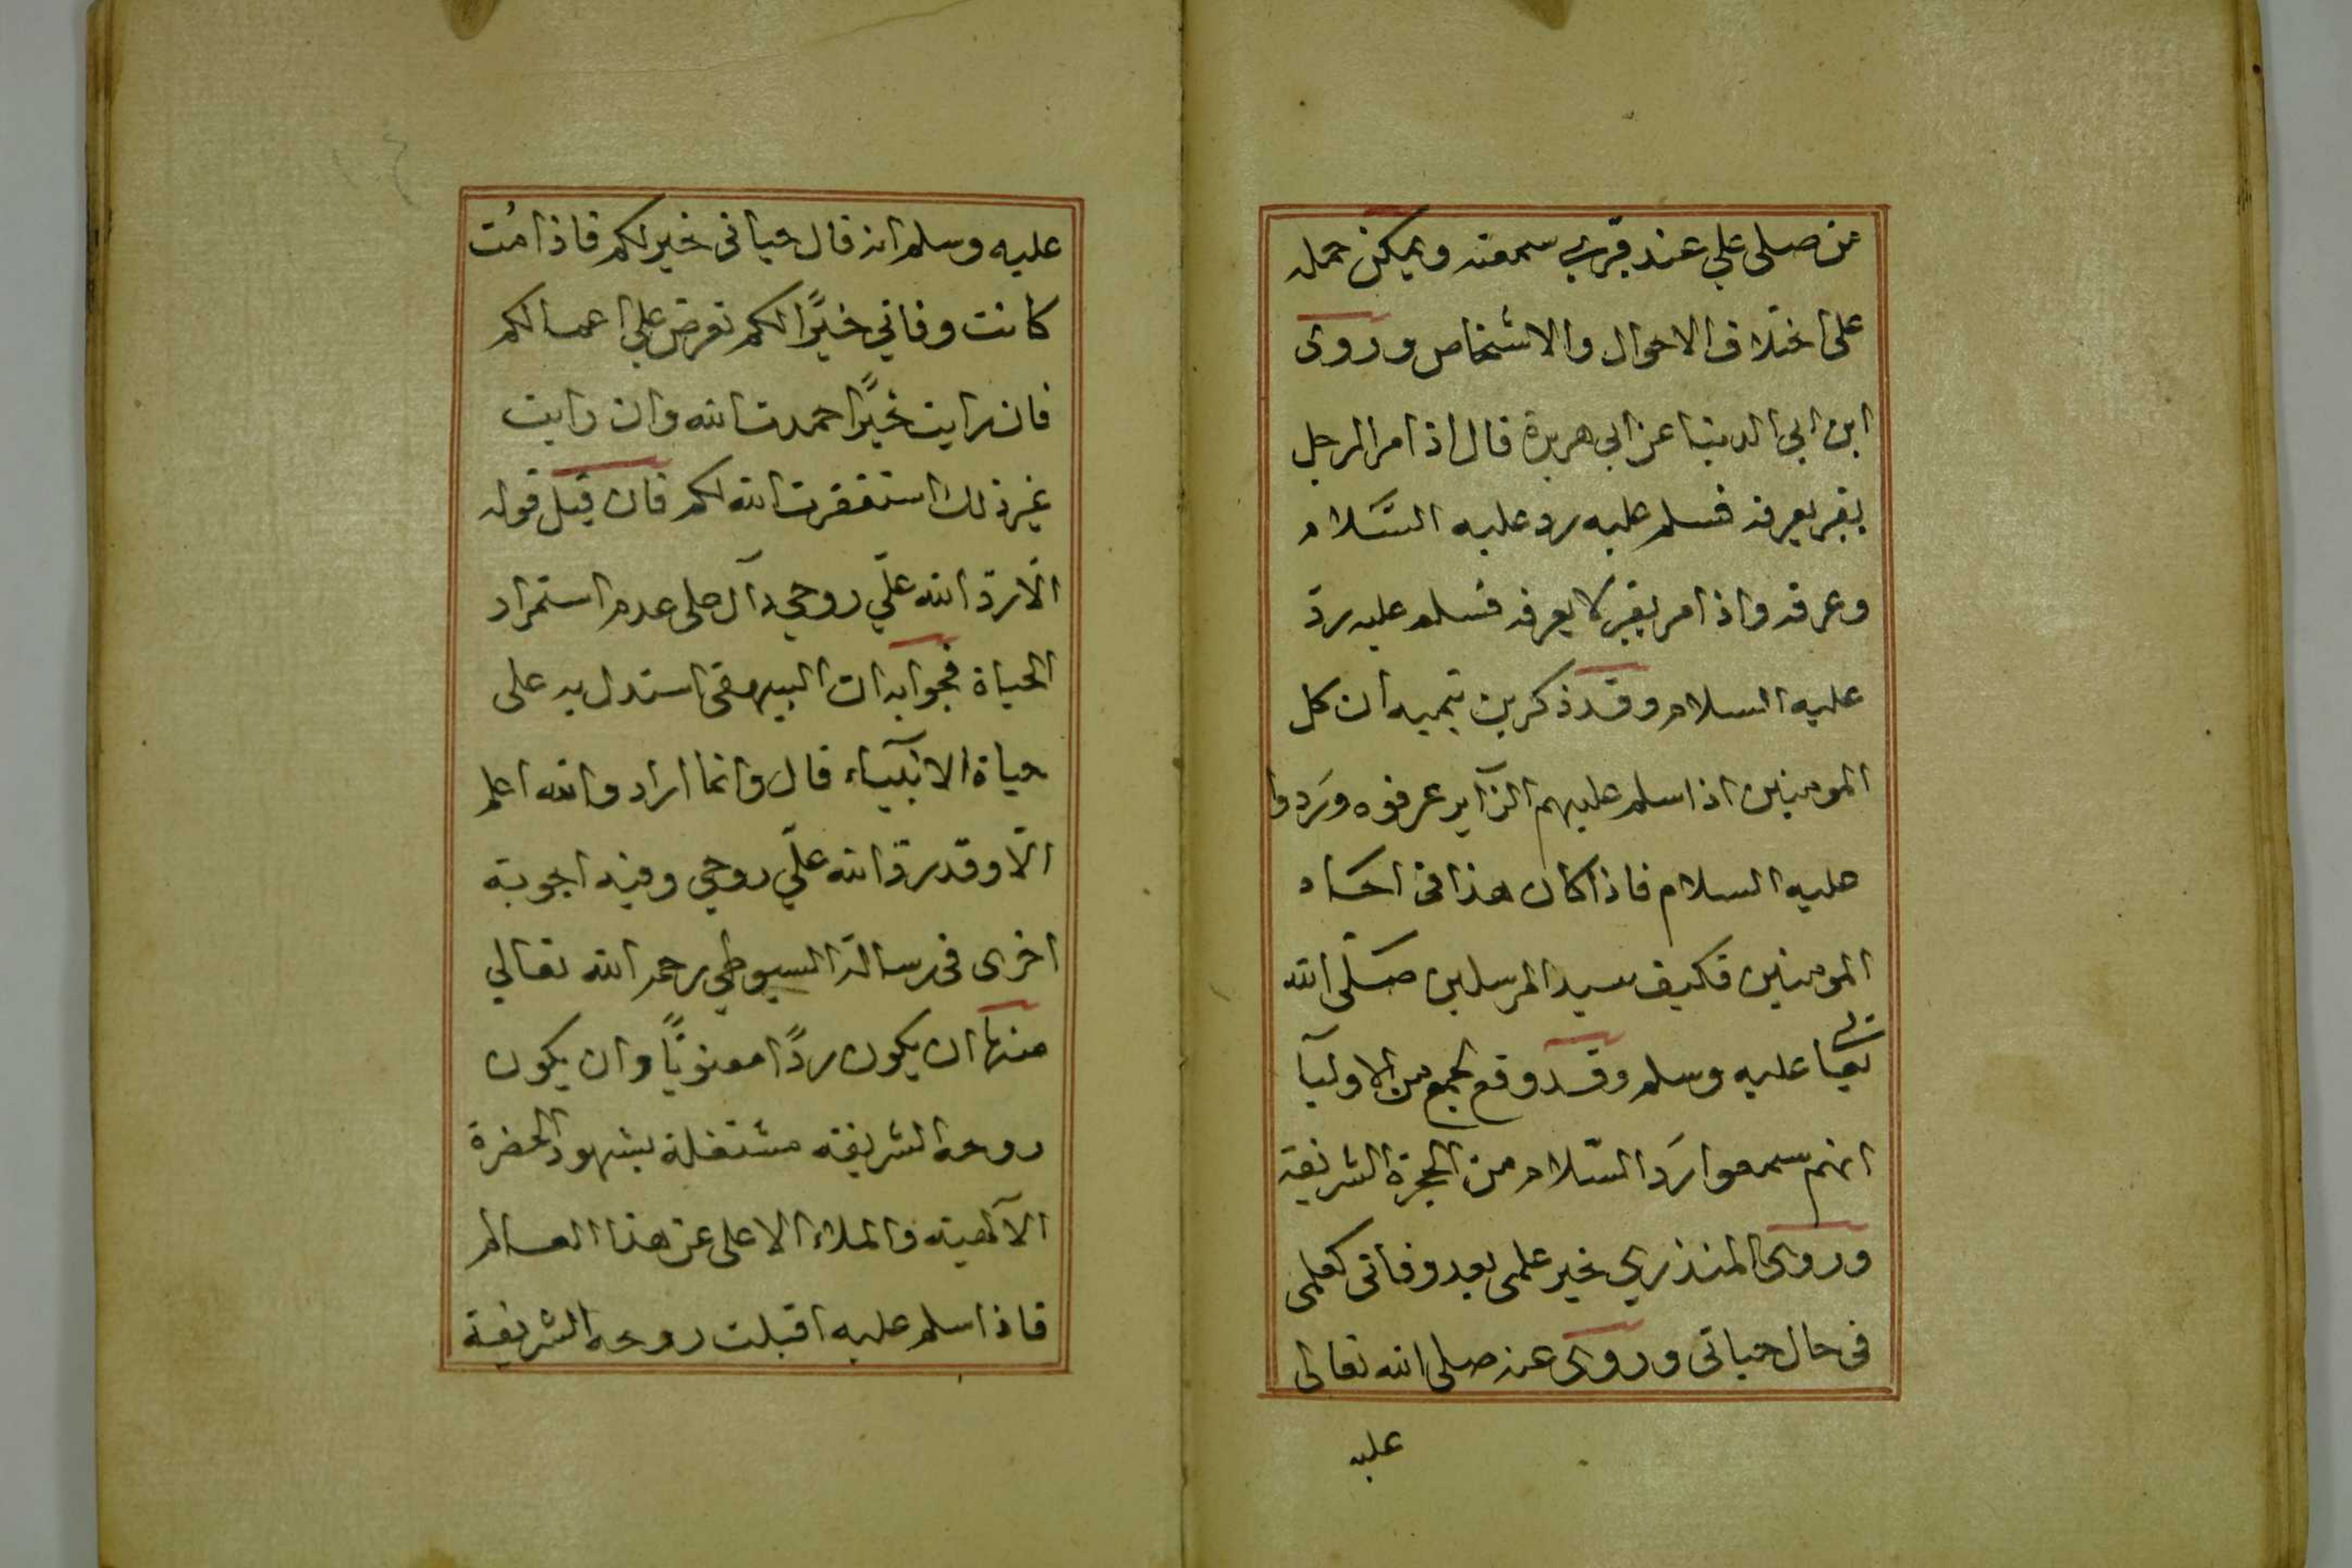 من صلى علي عند قبري سمعته ويمكن حمله
على اختلاف الاحوال والاشخاص وروى
ابن ابي الدنيا عن ابي هريرة قال اذا مر الرجل
بقبر يعرفه فسلم عليه رد عليه السَّلام
وعرفه واذا مر بقبر لا يعرفه فسلم عليه ردّ
عليه السلام وقد ذكر بن تيميه ان كل
المومنين اذا سلم عليهم الزآير عرفوه ورَدوا
عليه السلام فاذا كان هذا فى احاد
المومنين فكيف سيد المرسلين صَلّى الله
تعالى عليه وسلم وقد وقع لجمع من الاوليآ
انهم سمعوا رَد السّلام من الحجرة الشريفة
وروى المنذري خير علمى بعد وفاتى كعلمى
فى حال حياتى وروى عنه صلى الله تعالى
عليه
عليه وسلم انه قال حياتى خير لكم فاذا مُت
كانت وفاتي خيرًا لكم تعرض علي اعمالكم
فان رايت خيرًا حمدت الله وان رايت
غير ذلك استغفرت الله لكم فان قيل قوله
الّا ردّ الله علّي روحي دآل على عدم استمرار
الحياة فجوابه ان البيهقى استدل به على
حياة الانبيآء قال وانما اراد والله اعلم
الّا وقد ردّ الله علّي روحي وفيه اجوبة
اخرى فى رسالة السيوطي رحمه الله تعالي
منها ان يكون ردًا معنويًا وان يكون
روحه الشريفه مشتغلة بشهود الحضرة
الآلهيته والملاء الاعلى عن هذا العالم
فاذا سلم عليه اقبلت روحه الشريفة